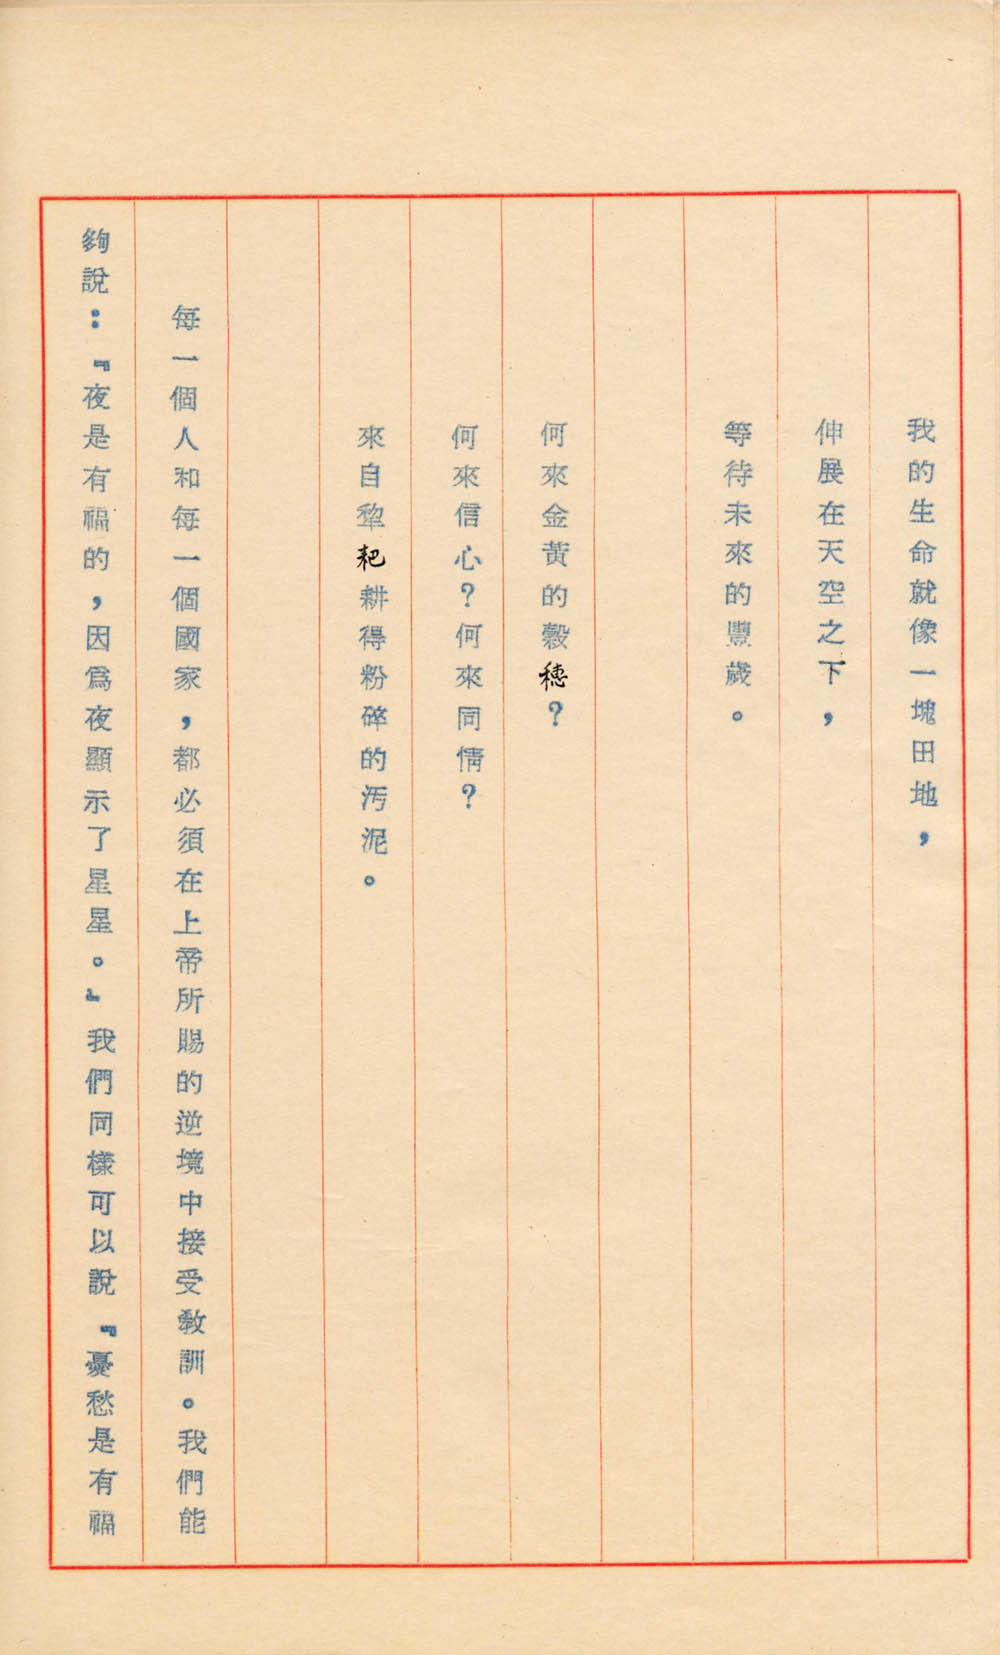 我的生命就像一塊田地，
伸展在天空之下，
等待未來的豐歲。
何來金黃的穀穗？
何來信心？何來同情？
來自犂耙耕得粉碎的汚泥。
每一個人和每一個國家，都必須在上帝所賜的逆境中接受教訓。我們能
夠說：『夜是有福的，因爲夜顯示了星星。』我們同樣可以說『憂愁是有福